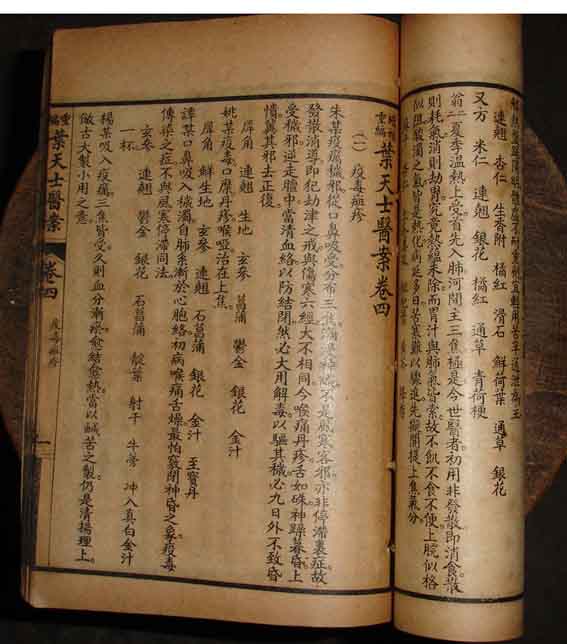 連翹 杏仁 生香附 橘紅 滑石 鮮荷葉 通草 銀花
又方 米仁 連翹 銀花 橘紅 通草 青荷梗
翁二二夏季溫熱上受。首先入肺。河間主三焦極是。今世醫者。初用非發散即消食。散
則耗氣。消則劫胃。究竟熱蘊未除。而胃汁與肺氣皆索。故不飢不食不便。上脘似格
重編葉天士醫案卷四
(一) 疫毒痧疹
朱某疫癘穢邪從口鼻吸受。分布三焦。不是風寒客邪。亦非停滯裏症。故
發散消導。即犯劫津之戒。與傷寒六經大不相同。今喉痛丹疹。舌如硃。神躁暮昏。上
受穢邪。逆走膻中。當清血絡以防結閉。然必大用解毒以驅其穢。必九日外不致昏
憒。冀其邪去正復。
犀角 連翹 生地 玄參 菖蒲 鬱金 銀花 金汁
姚某疫毒。口糜丹疹喉啞。治在上焦。
犀角 鮮生地 玄參 連翹 石菖蒲 銀花 金汁 至寶丹
譚某口鼻吸入穢濁。自肺系漸於心胞絡。初病喉痛舌燥。最怕竅閉神昏之象。疫毒
傳染之症。不與風寒停滯同法。
玄參 連翹 鬱金 銀花 石菖蒲 靛葉 射干 牛蒡 冲入真白金汁
一杯
楊某吸入疫癘。三焦皆受。久則血分漸瘀。愈結愈熱。當以鹹苦之製。仍是清揚理上。
倣古大製小用之意。
重編葉天士醫案
卷四
疫毒痧疹
一